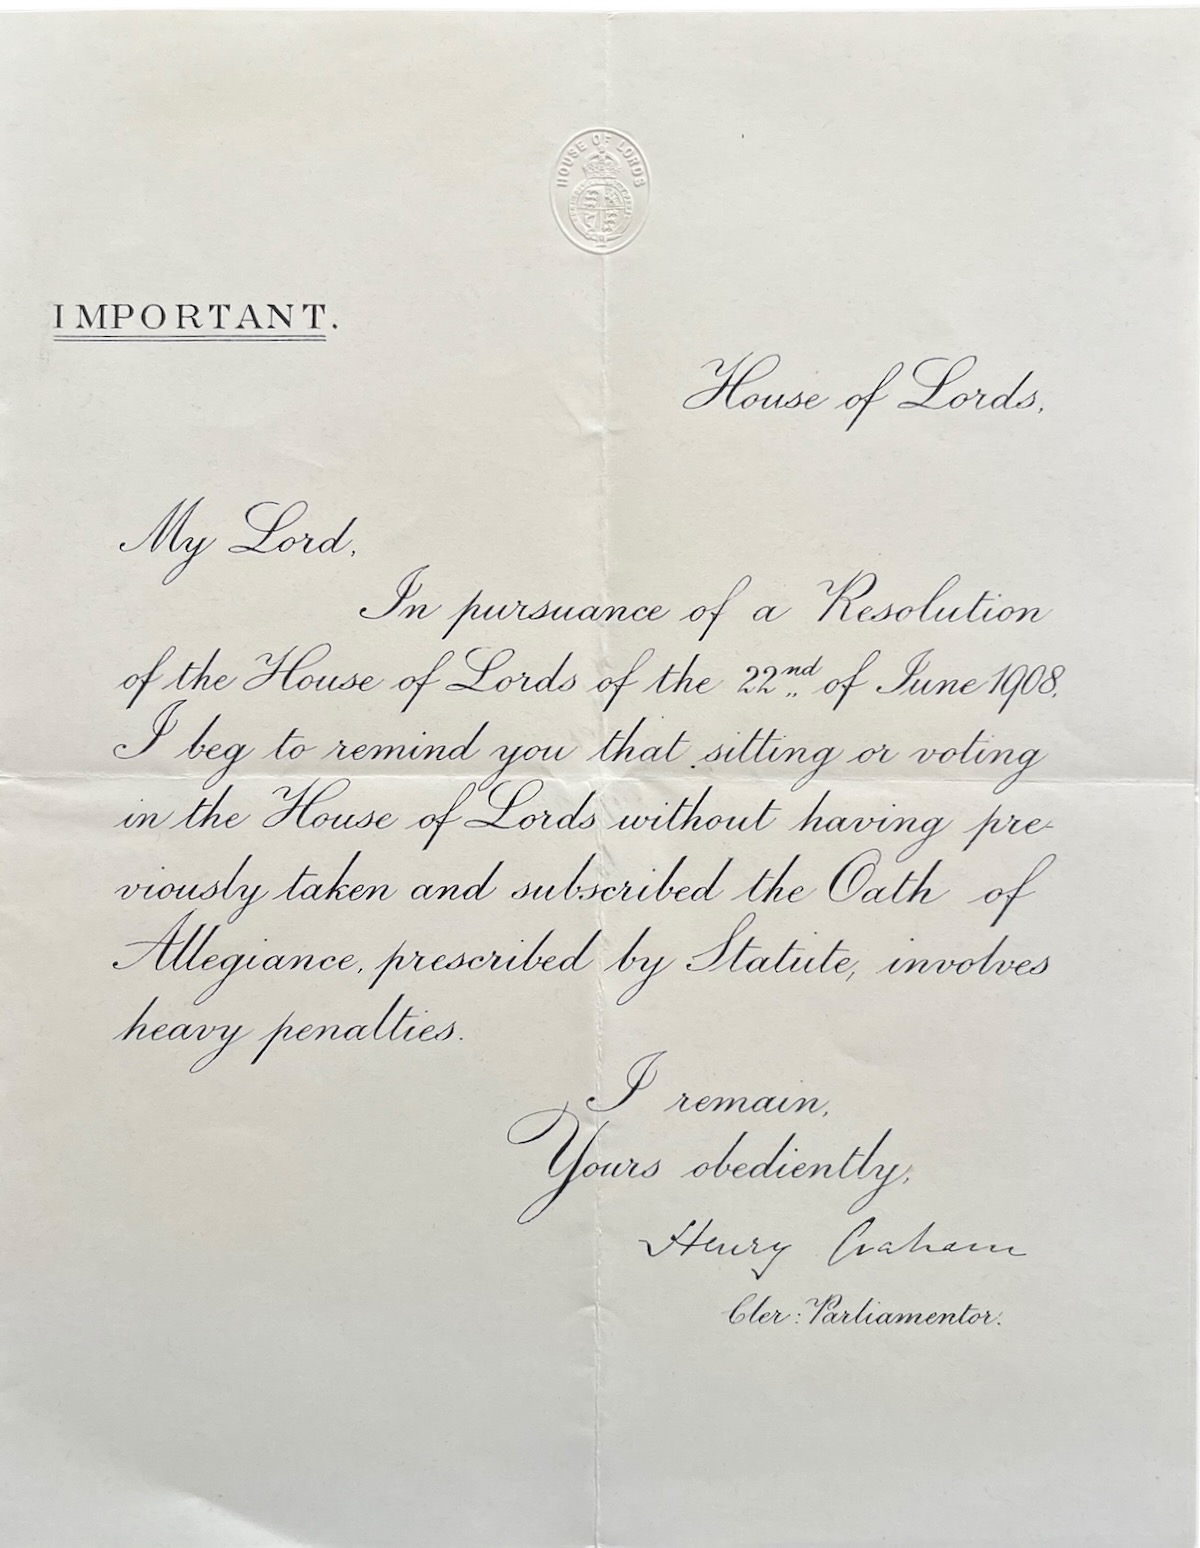 HOUSE OF LORDS
IMPORTANT.
House of Lords,
My Lord,
In pursuance of a Resolution
of the House of Lords of the 22nd of June 1908,
I beg to remind you that sitting or voting
in the House of Lords without having pre-
viously taken and subscribed the Oath of
Allegiance, prescribed by Statute, involves
heavy penalties.
I remain,
Yours obediently,
Henry Graham
Cler: Parliamentor.